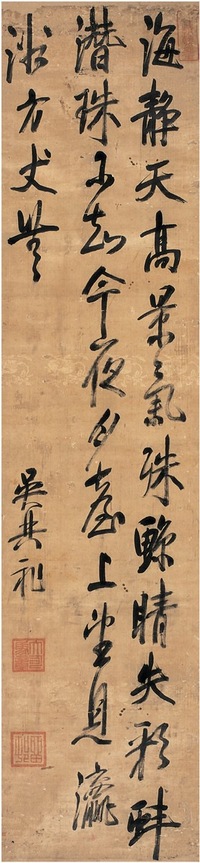 海静天高景气殊鲸睛失彩蚌
潜珠不知今夜夕台上坐見瀛
洲方丈無
吳其礼